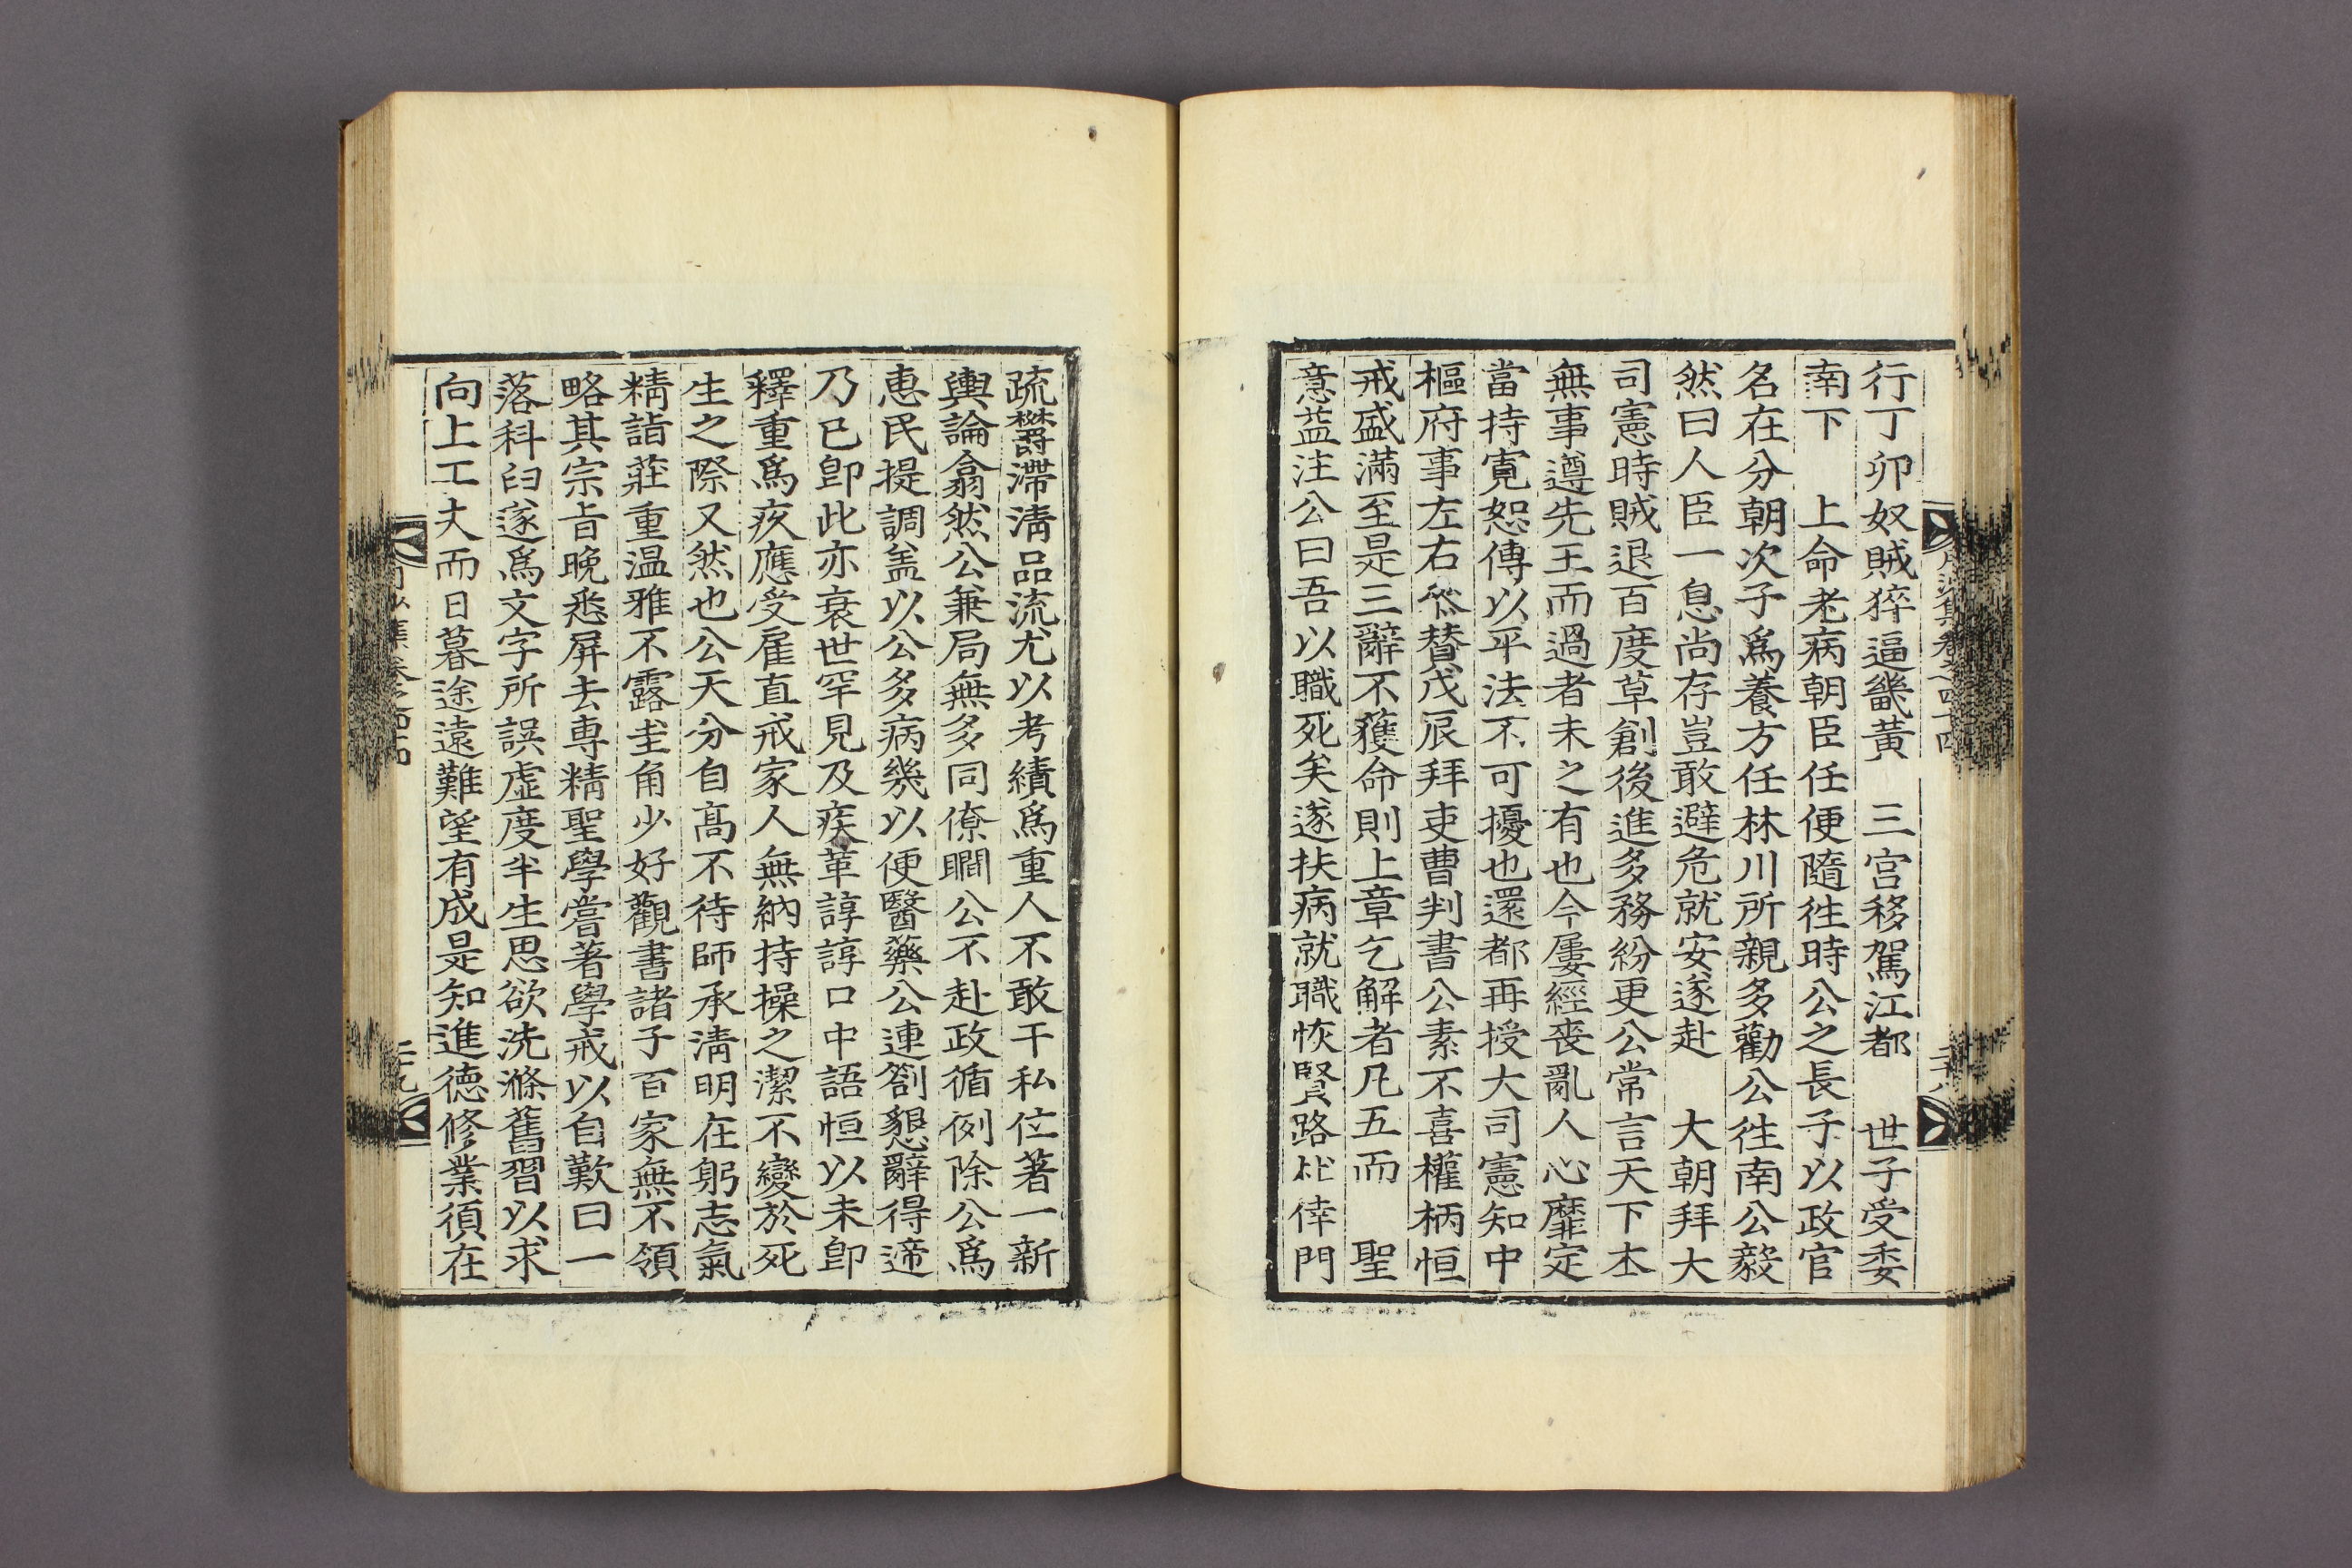 行丁卯奴賊猝逼畿黃　三宮移駕江都　世子受委
南下　上命老病朝臣任便隨徃時公之長子以政官
名在分朝次子爲養方任林川所親多勸公徃南公毅
然曰人臣一息尚存豈敢避危就安遂赴　大朝拜大
司憲時賊退百度草創後進多務紛更公常言天下本
無事遵先王而過者未之有也今屢經喪亂人心靡定
當持寬恕傅以平法不可擾也還都再授大司憲知中
樞府事左右叅賛戊辰拜吏曹判書公素不喜權柄恒
戒盛滿至是三辭不獲命則上章乞解者凡五而　聖
意益注公曰吾以職死矣遂扶病就職恢賢路杜倖門
月沙集卷之四十四
二十八
疏欝滯淸品流尤以考績爲重人不敢干私位著一新
輿論翕然公兼局無多同僚瞷公不赴政循例除公爲
惠民提調盖以公多病幾以便醫藥公連劄懇辭得遞
乃已卽此亦衰世罕見及疾革諄諄口中語恒以未卽
釋重爲疚應受雇直戒家人無納持操之潔不變於死
生之際又然也公天分自高不待師承淸明在躬志氣
精詣莊重温雅不露圭角少好觀書諸子百家無不領
略其宗旨晚悉屏去專精聖學嘗著學戒以自歎曰一
落科臼遂爲文字所誤虛度半生思欲洗滌舊習以求
向上工夫而日暮途遠難望有成是知進德修業須在
月沙集卷之四十四
二十九